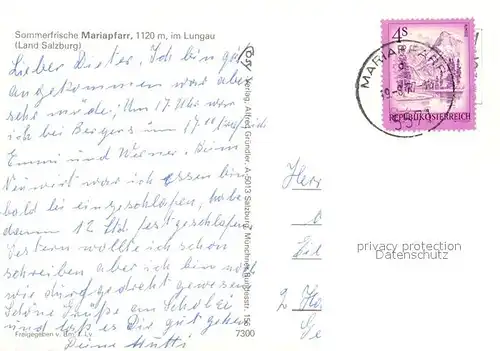 Sommerfrische Mariapfarr, 1120 m, im Lungau
(Land Salzburg)
Lieber Dieter, Ich bin gut
angekommen war aber
sehr müde; Um 17 Uhr war
ich bei Bergers um 17
Emmi und Werner. Beim
Neuwirt war ich essen bin
bald bei eingeschlafen, habe
dann 12 Std fest geschlafen
Gestern wollte ich schon
schreiben aber ich bin noch
wie durchgedreht gewesen
Schöne Grüße am Schabei
und laß es Dir gut gehen
Deine Mutti
Freigegeben v. d. I. Lv.
7300
Verlag Alfred Gründler, A-5013 Salzburg, Münchner Bundesstr. 156
4s
MARIAPFARR
REPUBLIK ÖSTERREICH
Herr
2 Ha
privacy protection
Datenschutz